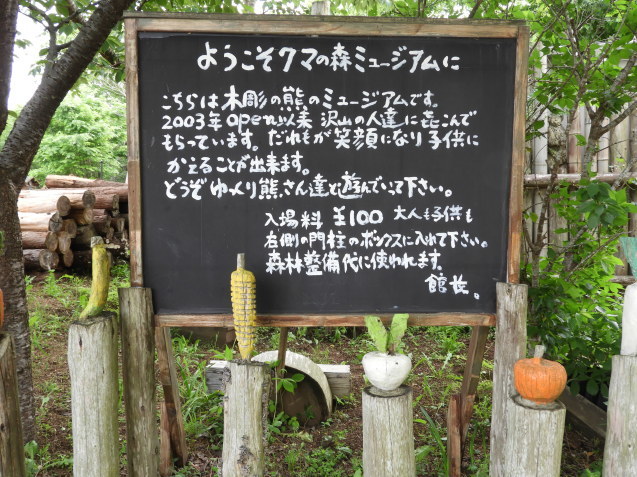 ようこそクマの森ミュージアムに
こちらは木彫の熊のミュージアムです。
2003年open以来 沢山の人達に㐂こんで
もらっています。だれもが笑顔になり子供に
かえることが出来ます。
どうぞゆっくり熊さん達と遊んでいって下さい。
入場料 ¥100 大人も子供も
左側の門柱のボックスに入れて下さい。
森林整備代に使われます。
館長。